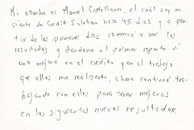 Mi nombre es Manuel Castellanos, el cual soy un
cliente de Credit Solution hace 45 dias y a par
tir de los primeros dias comencé a ver los
resultados y dandome al primer reporte vi
una mejora en el crédito y en el trabajo
que ellos me realizaron, ahora continuo tra-
bajando con ellos para tener mejores
en los siguientes nuevos resultados.